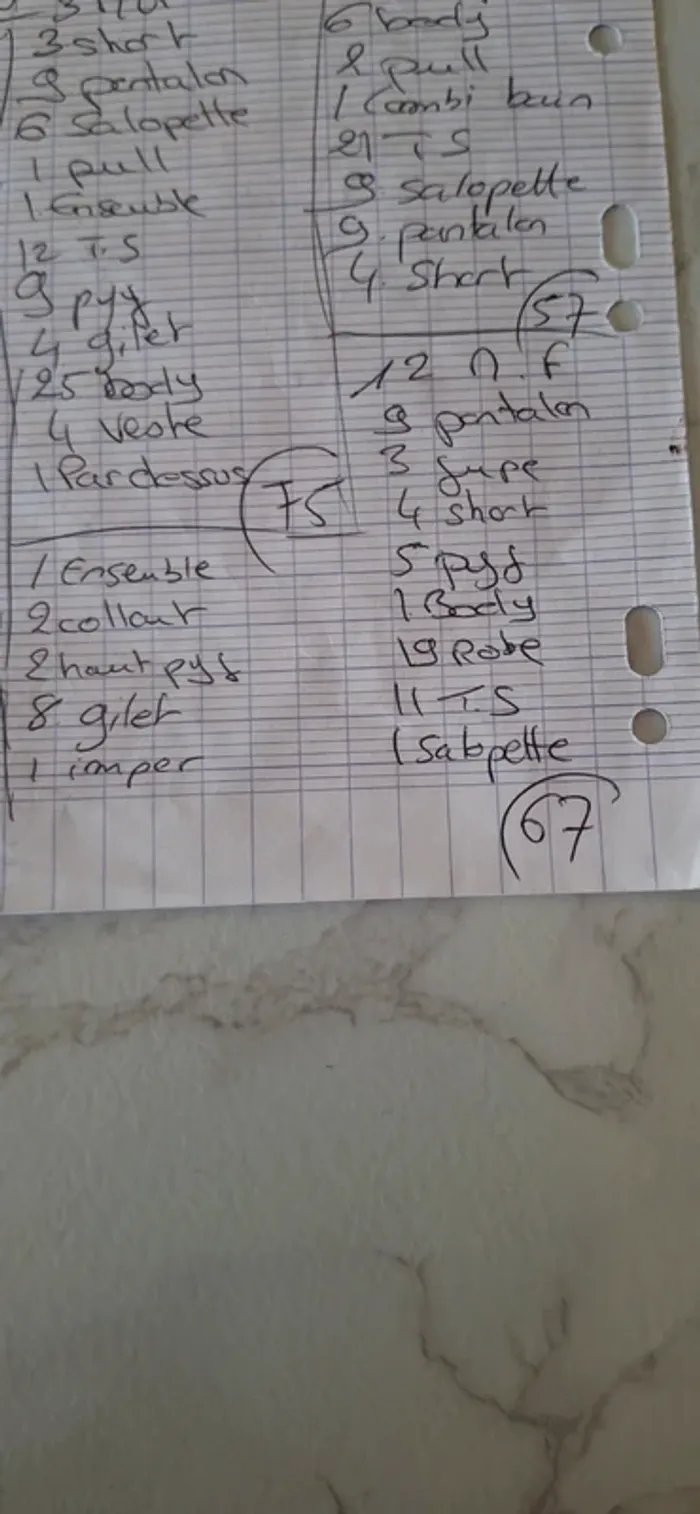 3 short
9 pantalon
6 Salopette
1 pull
1 Ensemble
12 T.S
9 pyj
4 gilet
25 body
4 veste
1 Pardessus
75
1 Ensemble
2 collant
2 haut pyj
8 gilet
1 imper
6 body
2 pull
1 Combi bain
21 T S
9 salopette
9. pantalon
4. Short
57
12 n.f
9 pantalon
3 jupe
4 short
5 pyj
1 Body
19 Robe
11 T.S
1 Salopette
67